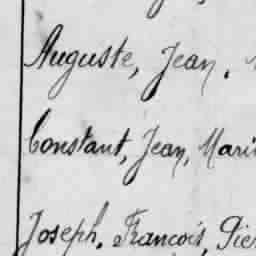 Auguste, Jean,
Constant, Jean, Mari
Joseph, François, Pie